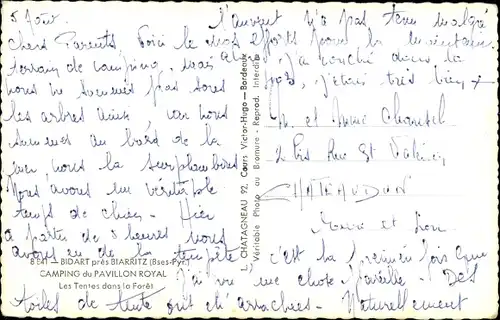 5 Août
Chers Parents, Voici le
terrain de camping, mais
nous ne sommes pas sous
les arbres mais, car nous
sommes au bord de la
mer, nous la surplombons
Nous avons un véritable
temps de chien - Hier
à partir de 5 heures nous
avons eu de la tempête
8 541 — BIDART près BIARRITZ (Bses-Pyr.)
CAMPING du PAVILLON ROYAL
Les Tentes dans la Forêt
toiles de tente ont été arrachées - Naturellement
L. CHATAGNEAU 92, Cours Victor-Hugo — Bordeaux
Véritable Photo au Bromure - Reprod. Interdite
l'auvent n'a pas tenu malgré
efforts pour le maintenir
J'ai couché dans la
, c'était très bien
M. et Mme
2 bis Rue St Valérien
CHATEAUDUN
Eure et Loir
c'est la première fois que
j'ai vu une chose pareille. DES